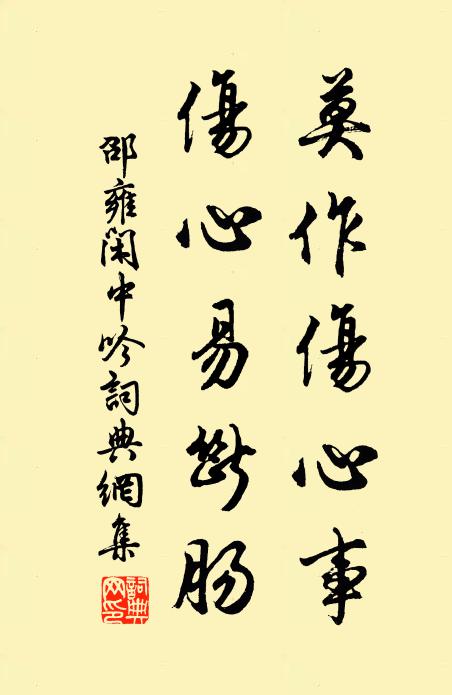 莫作傷心事
傷心易斷腸
邵雍閑中吟詞典網集
詞典網印